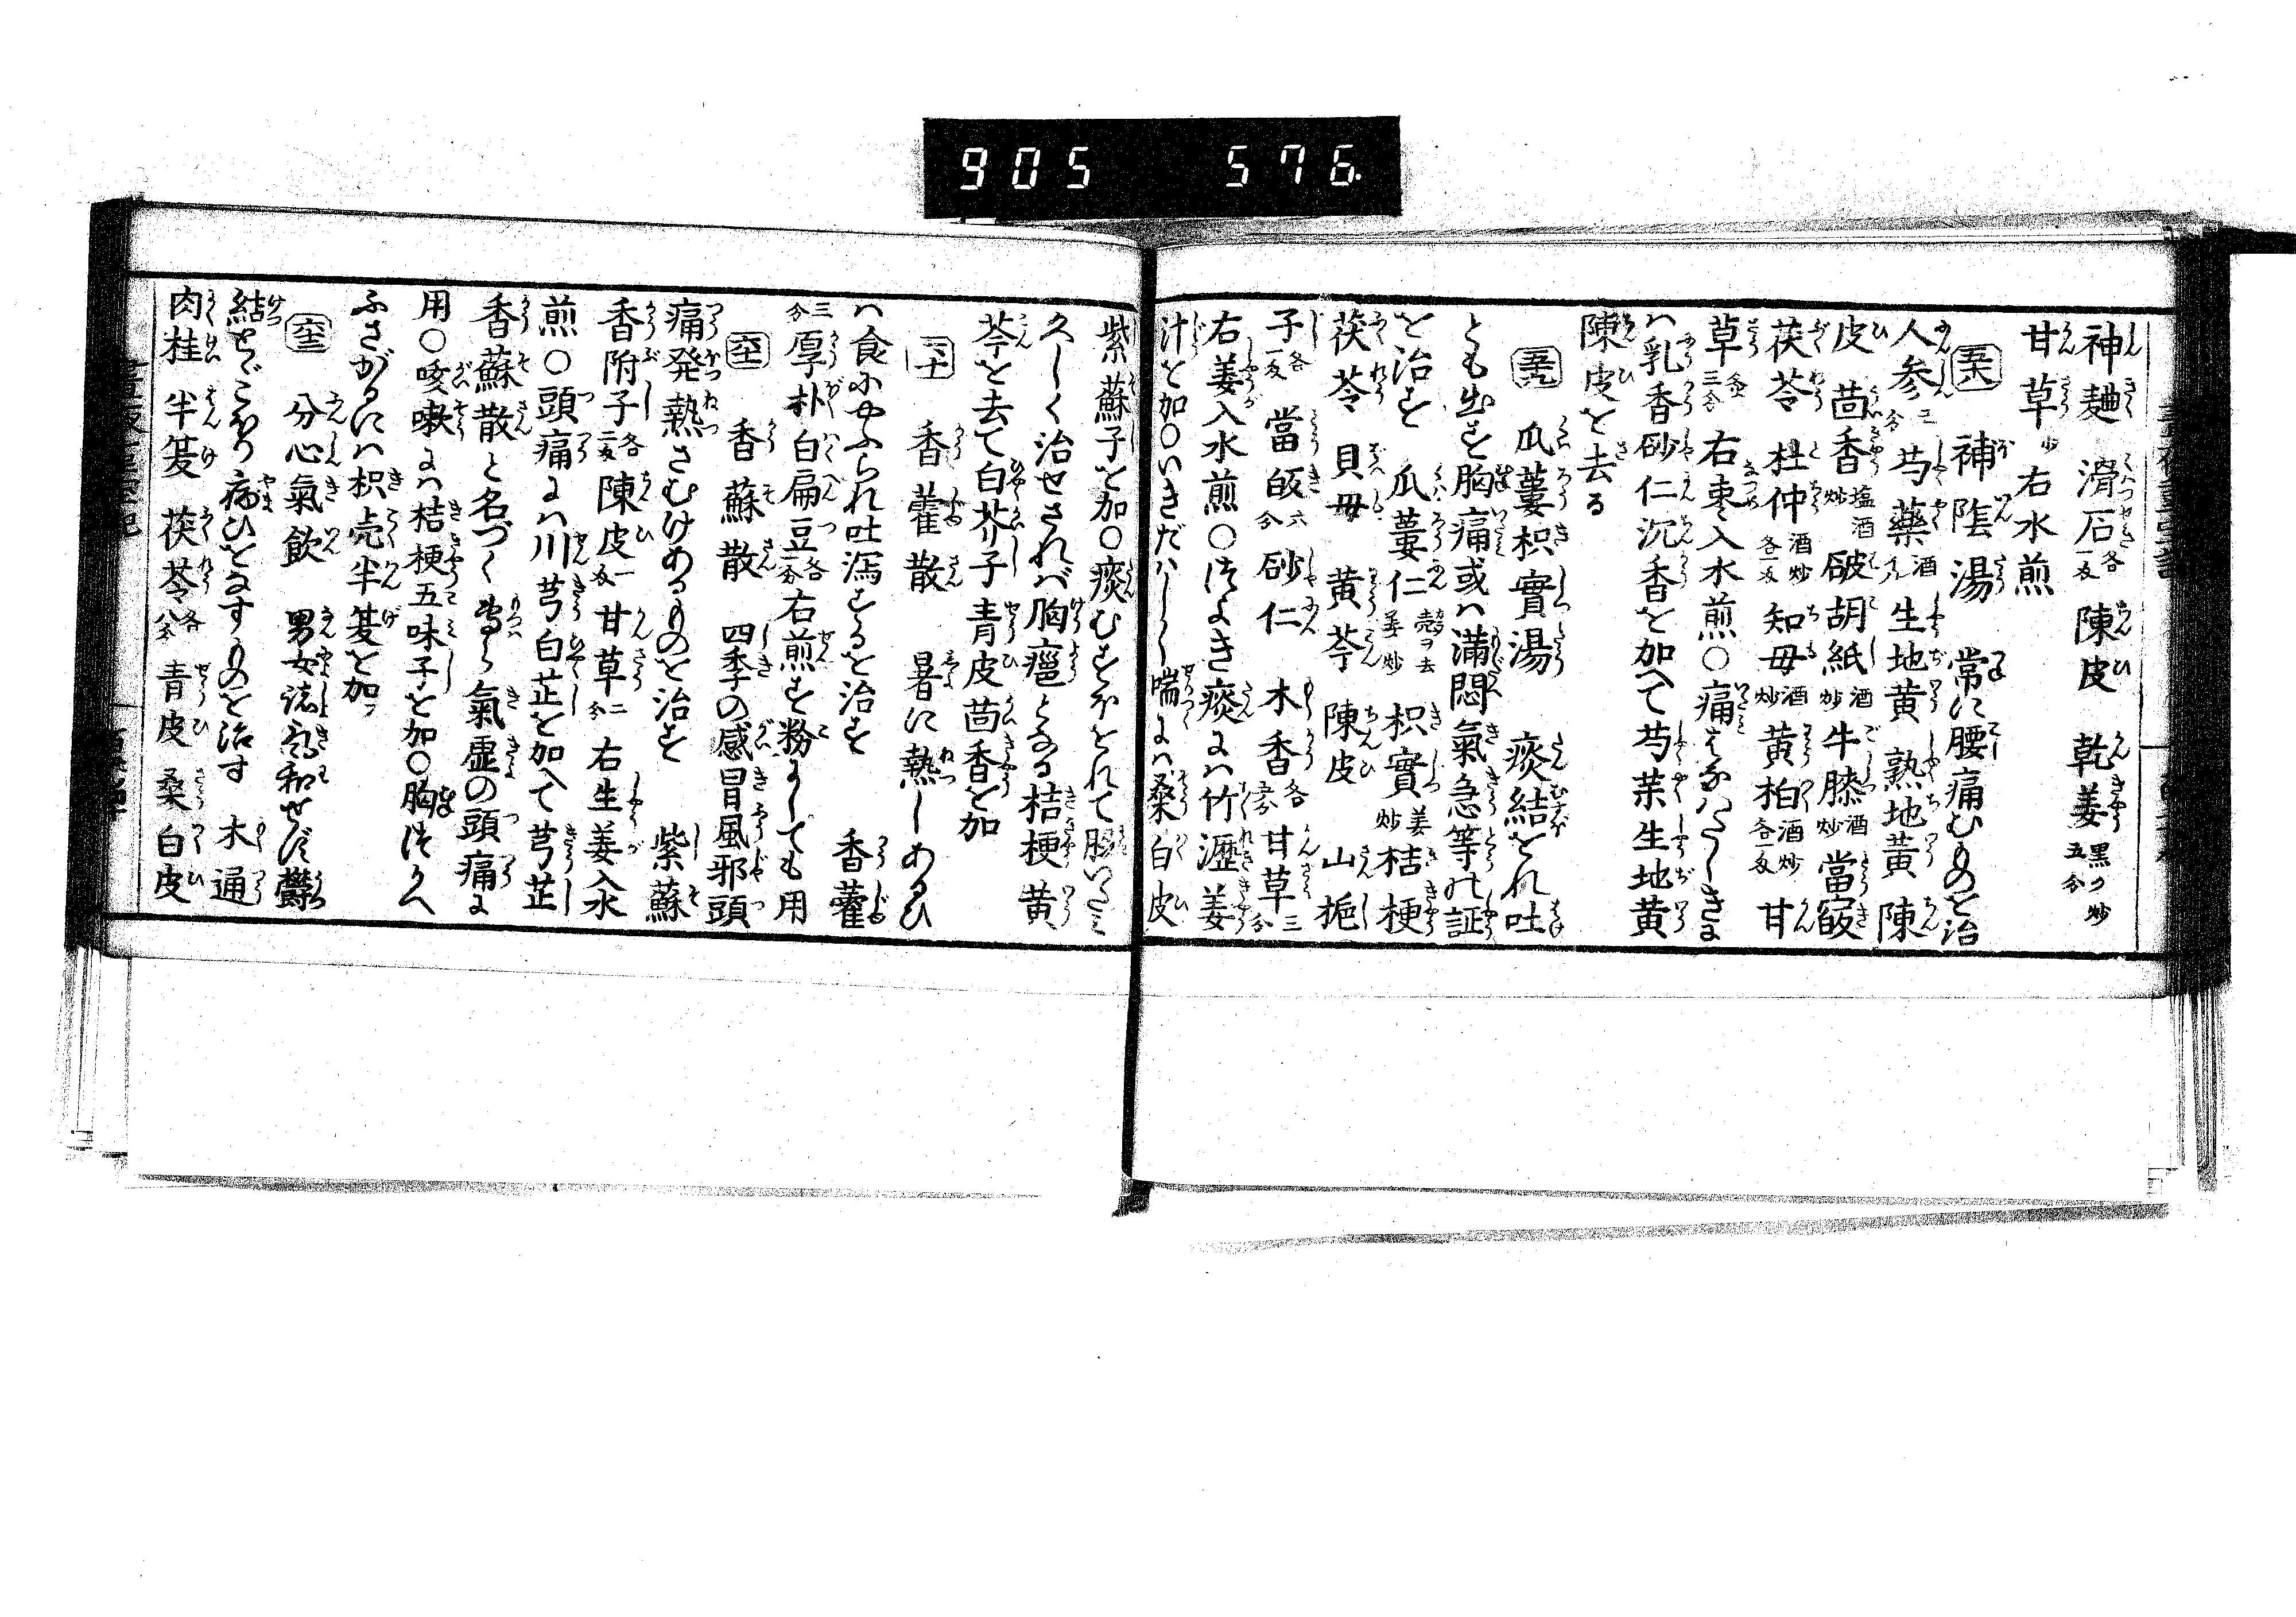 905 576
神麯 滑石各一匁 陳皮 乾姜黒ク炒五分
甘草少 右水煎
五十八 補陰湯 常に腰痛むものを治
人参三分 芍藥酒炒 生地黄 熟地黄 陳
皮 茴香塩酒炒 破胡紙酒炒 牛膝酒炒 當皈
茯苓 杜仲酒炒各一匁 知母酒炒 黄柏酒炒各一匁 甘
草三分 右棗入水煎○痛はなはだしきに
ハ乳香砂仁沉香を加へて芍藥生地黄
陳皮を去る
五十九 瓜蔞枳實湯 痰結をれ吐
とも出ず胸痛或ハ満悶氣急等の証
を治す 瓜蔞仁殻ヲ去姜炒 枳實姜炒 桔梗
茯苓 貝母 黄芩 陳皮 山梔
子各一匁 當皈六分 砂仁 木香各五分 甘草三分
右姜入水煎○つよき痰にハ竹瀝姜
汁を加○いきだハしく喘にハ桑白皮
紫蘇子を加○痰むすぼをれて胸いたミ
久しく治せされバ胸痞となる桔梗黄
芩を去て白芥子青皮茴香を加
六十 香薷散 暑に熱しあるひ
ハ食にやふられ吐瀉するを治す 香薷
三分 厚朴 白扁豆各一分 右煎ず粉にしても用
六十一 香蘇散 四季の感冒風邪頭
痛発熱さむけあるものを治す 紫蘇
香附子各二匁 陳皮一匁 甘草二分 右生姜入水
煎○頭痛にハ川芎白芷を加へて芎芷
香蘇散と名づく専ら氣虚の頭痛に
用○咳嗽にハ桔梗五味子を加○胸つかへ
ふさがるにハ枳壳半夏を加フ
六十二 分心氣飲 男女諸氣和せず鬱
結とゞこほり病ひをなすものを治す 木通
肉桂 半夏 茯苓各八分 青皮 桑白皮